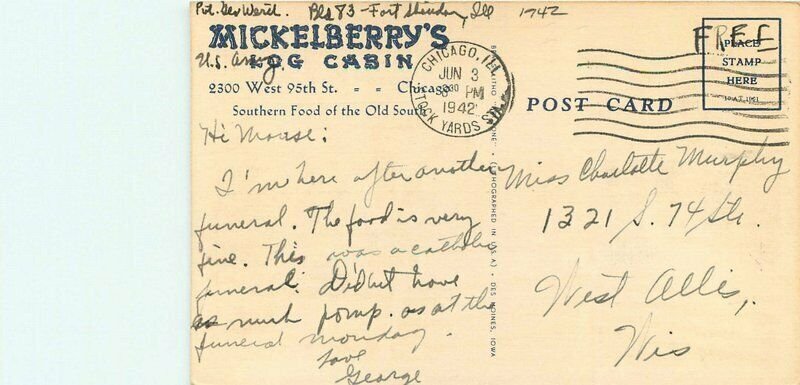 Pvt. Geo Werel. Bld 83 - Fort Sheridan, Ill 1942
MICKELBERRY'S
U.S. Army. LOG CABIN
2300 West 95th St. - - Chicago
Southern Food of the Old South
CHICAGO, ILL
JUN 3
8 30 PM
1942
STOCK YARDS STA
FREE
PLACE
STAMP
HERE
POST CARD
Hi Mouse:
I'm here after another
funeral. The food is very
fine. This was a catholic
funeral. Didn't have
as much pomp. as at the
funeral monday.
Love
George
(LITHOGRAPHED IN U.S.A.) - DES MOINES, IOWA
Miss Charlotte Murphy
1321 S. 74 Str.
West Allis,
Wis